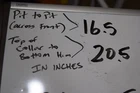 Pit to Pit
(across front)
16.5
Top of
Collar to
Bottom Hem
20.5
IN INCHES